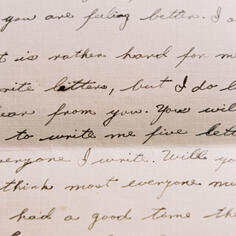 you are feeling better. I a
t is rather hard for m
rite letters, but I do l
ear from you. You will
to write me five lett
veryone I write. Will yo
think most everyone mu
had a good time the